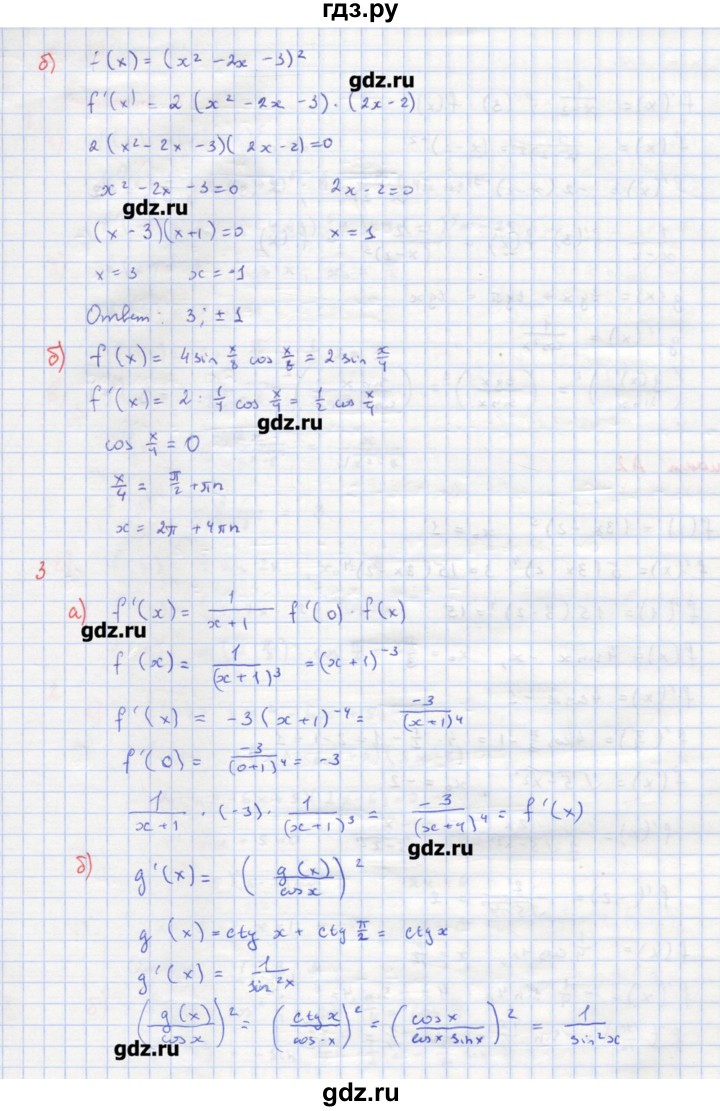 гдз.ру
б) f(x) = (x² - 2x - 3)²
gdz.ru
f'(x) = 2 (x² - 2x - 3) · (2x - 2)
2 (x² - 2x - 3)(2x - 2) = 0
x² - 2x - 3 = 0    2x - 2 = 0
gdz.ru
(x - 3)(x + 1) = 0    x = 1
x = 3    x = -1
Ответ: 3; ± 1
б) f(x) = 4 sin x/8 cos x/8 = 2 sin x/4
f'(x) = 2 · 1/4 cos x/4 = 1/2 cos x/4
gdz.ru
cos x/4 = 0
x/4 = π/2 + πn
x = 2π + 4πn
3
а) f'(x) = 1/(x+1) f'(0) · f(x)
gdz.ru
f'(x) = 1/(x+1)³ = (x+1)⁻³
f'(x) = -3(x+1)⁻⁴ = -3/(x+1)⁴
f'(0) = -3/(0+1)⁴ = -3
1/(x+1) · (-3) · 1/(x+1)³ = -3/(x+1)⁴ = f'(x)
gdz.ru
б) g'(x) = (g(x)/cosx)²
g(x) = ctg x + ctg π/2 = ctgx
g'(x) = 1/sin²x
(g(x)/cosx)² = (ctgx/cos·x)² = (cosx/cosx sinx)² = 1/sin²x
gdz.ru
gdz.ru